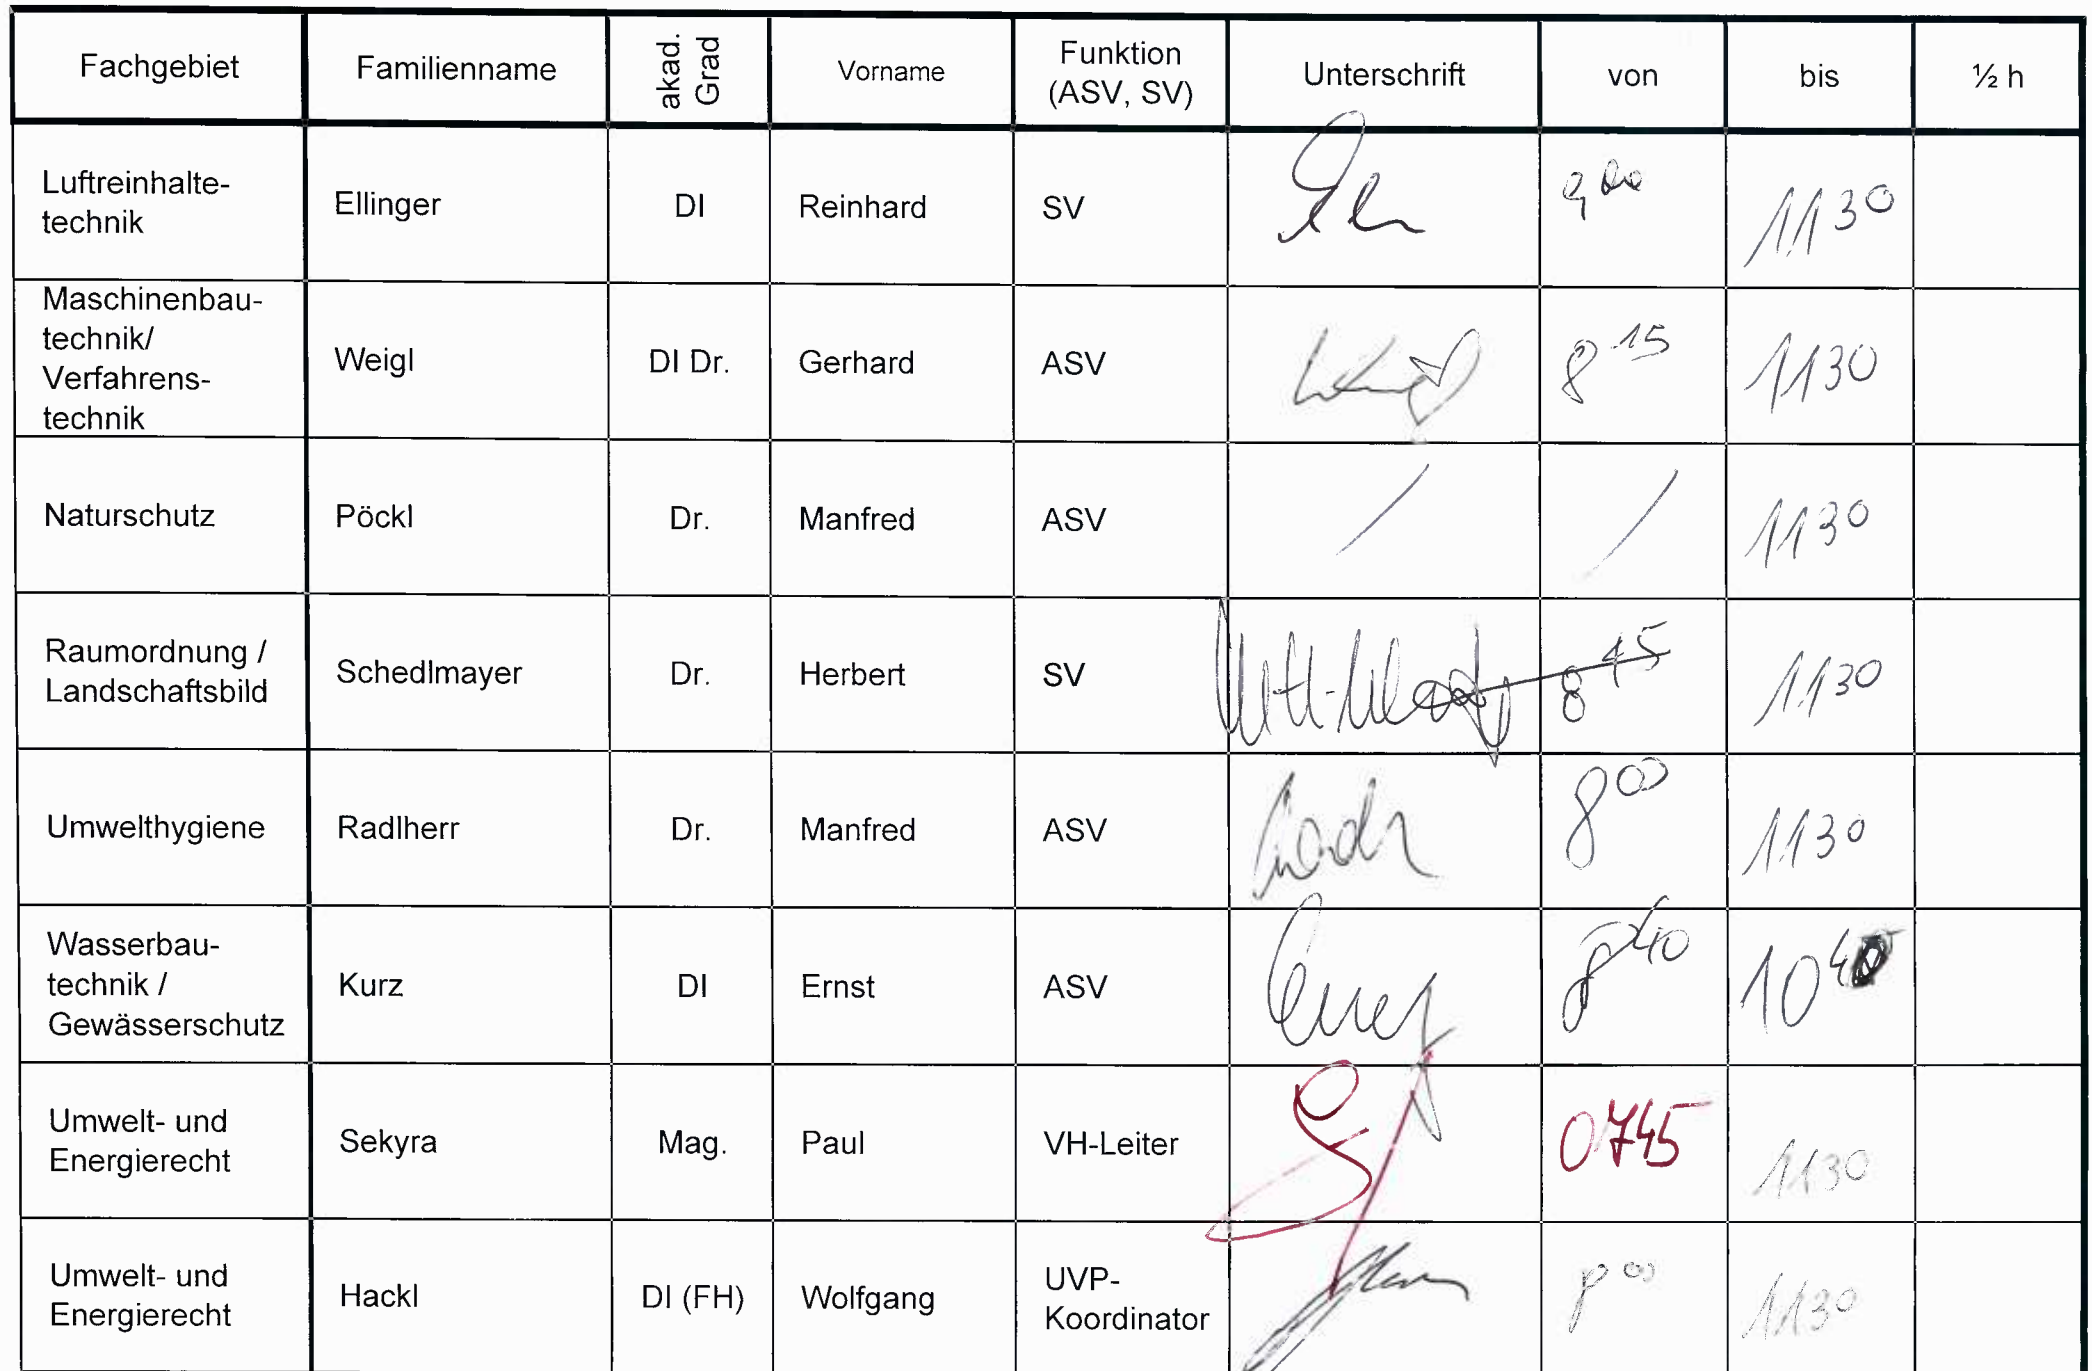 Fachgebiet Familienname akad. Grad Vorname Funktion (ASV, SV) Unterschrift von bis ½ h
Luftreinhalte-
technik Ellinger DI Reinhard SV 9 00 11 30
Maschinenbau-
technik/
Verfahrens-
technik Weigl DI Dr. Gerhard ASV 8 15 11 30
Naturschutz Pöckl Dr. Manfred ASV / / 11 30
Raumordnung /
Landschaftsbild Schedlmayer Dr. Herbert SV 8 45 11 30
Umwelthygiene Radlherr Dr. Manfred ASV 8 00 11 30
Wasserbau-
technik /
Gewässerschutz Kurz DI Ernst ASV 8 40 10
Umwelt- und
Energierecht Sekyra Mag. Paul VH-Leiter 0745 11 30
Umwelt- und
Energierecht Hackl DI (FH) Wolfgang UVP-
Koordinator 8 00 11 30